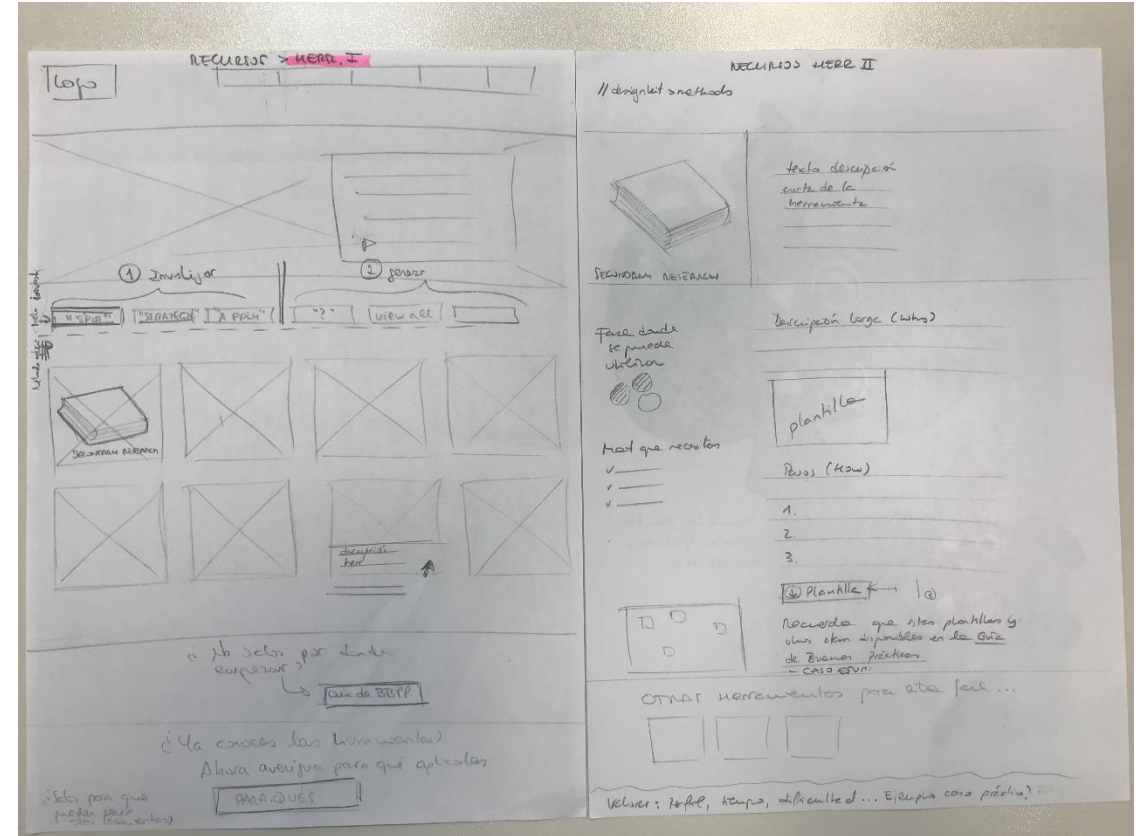 RECURSOS > HERR. I
Logo
① Investigar
② generar
"STRATEGY"
"APPLY"
"?"
view all
SECONDARY RESEARCH
descripción
herr
¿No sabes por donde
empezar?
Guía de BBPP
¿Ya conoces las herramientas?
Ahora averigua para qué aplicarlas
PARA QUÉS
RECURSOS HERR II
// designkit > methods
texto descripción
corta de la
herramienta
SECONDARY RESEARCH
Fase donde
se puede
utilizar
Mat que necesitas
Descripción larga (why)
plantilla
Pasos (How)
1.
2.
3.
Plantilla
Recuerda que estas plantillas y
otras están disponibles en la Guía
de Buenas Prácticas
- CASO ESTUD.
OTRAS herramientas para esta fase ...
Valorar: tiempo, dificultad ... Ejemplo caso práctico?